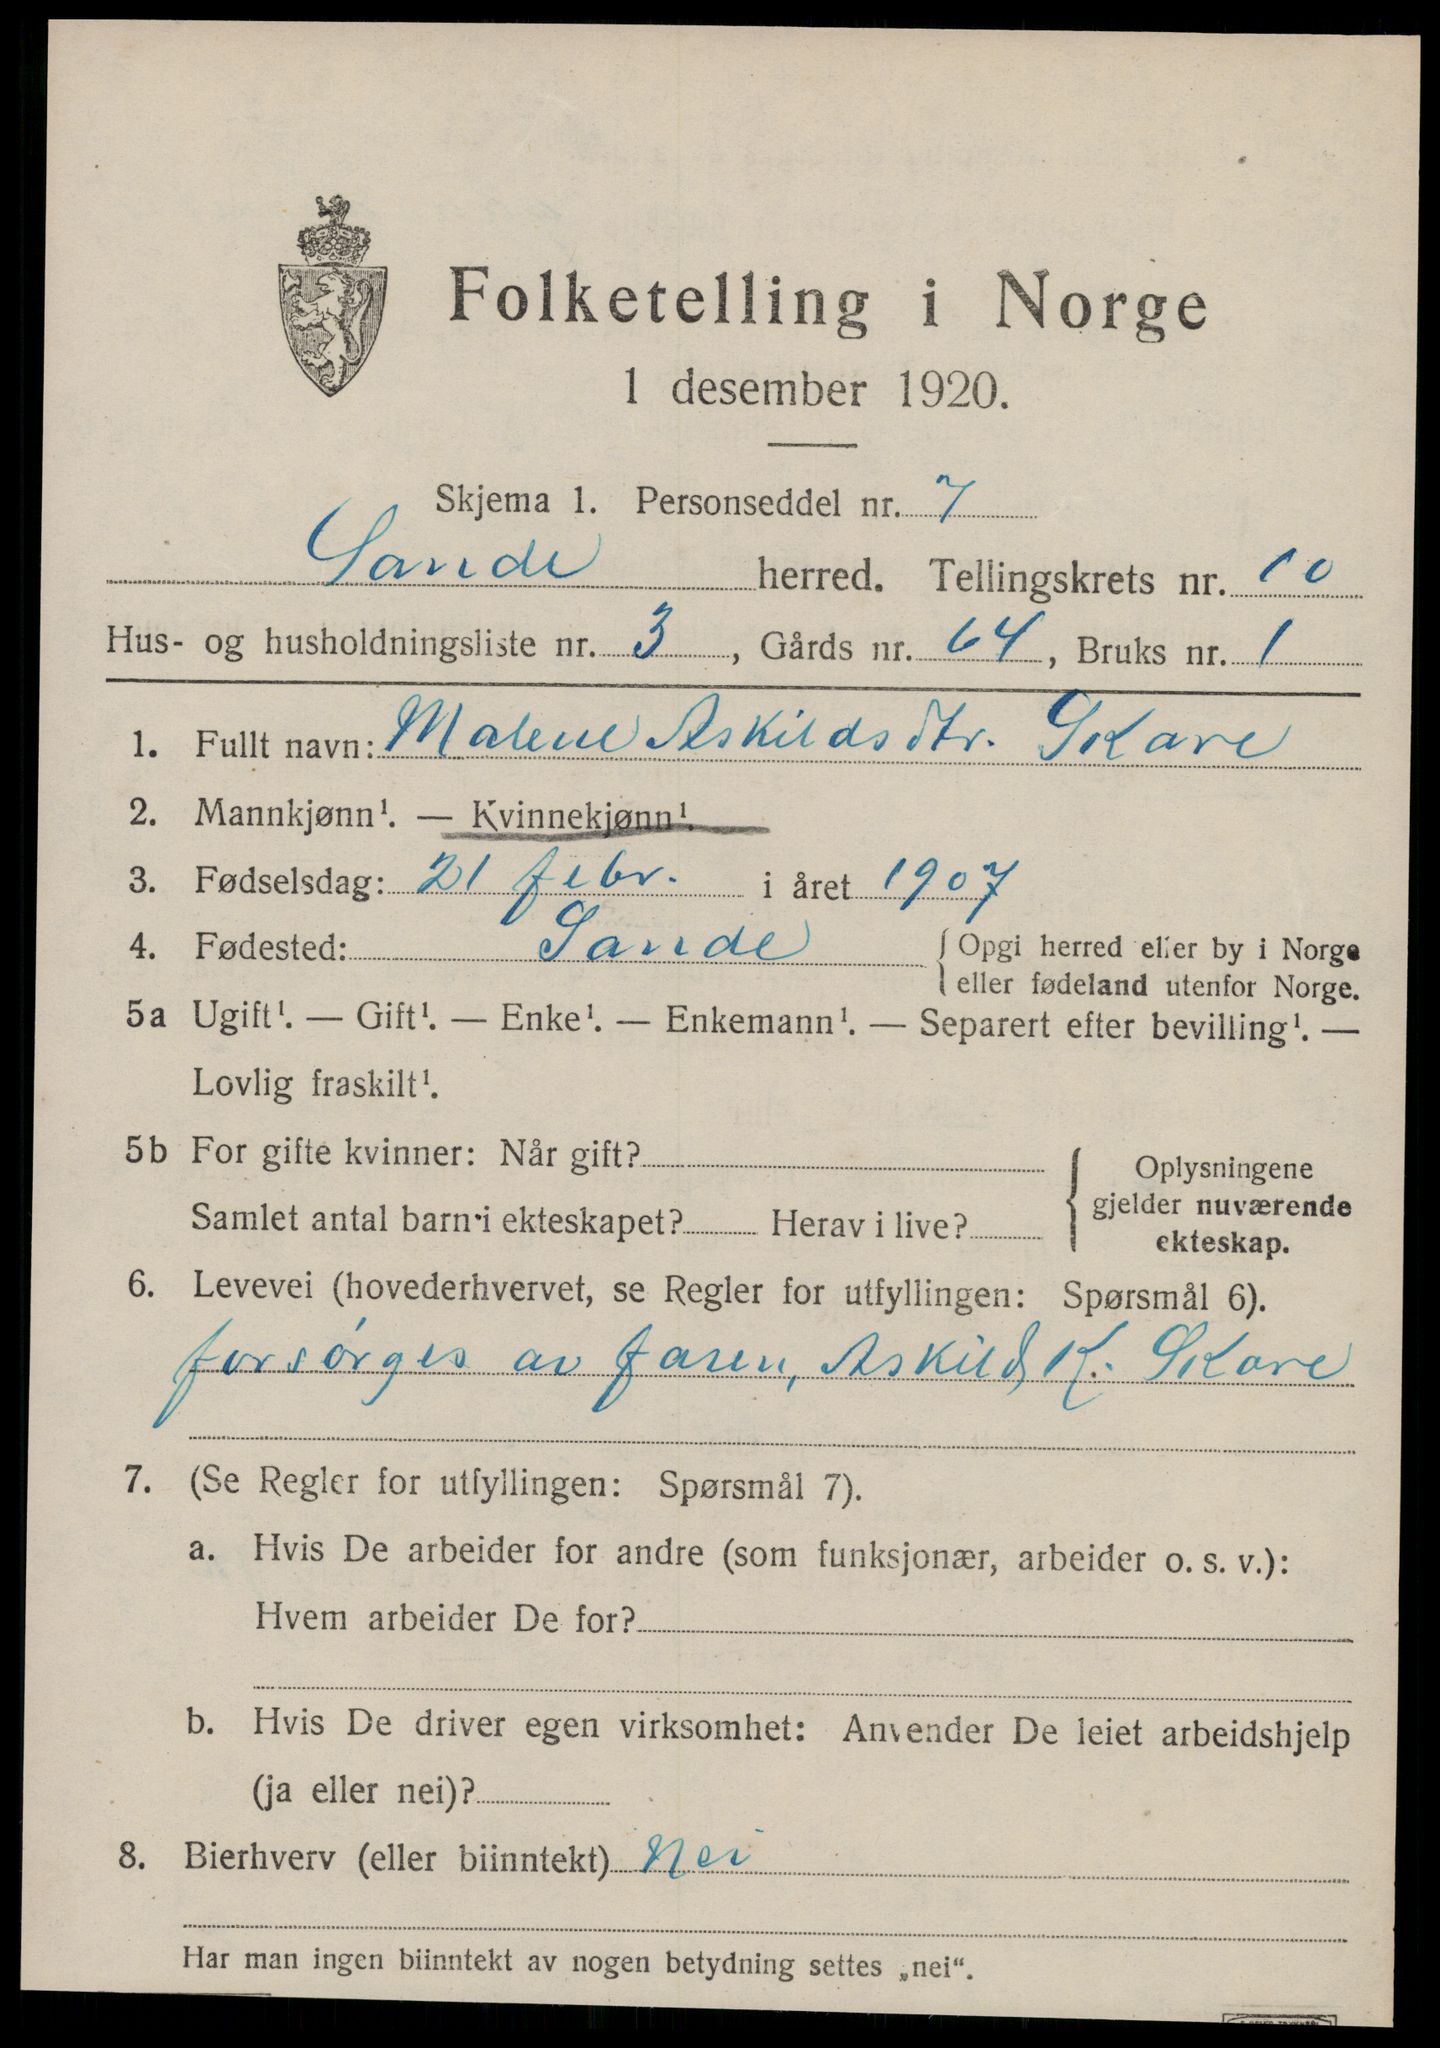 Folketelling i Norge
1 desember 1920.
Skjema 1. Personseddel nr. 7
Sande herred. Tellingskrets nr. 10
Hus- og husholdningsliste nr. 3, Gårds nr. 64, Bruks nr. 1
1. Fullt navn: Malene Askildsdtr. Skare
2. Mannkjønn¹. — Kvinnekjønn¹.
3. Fødselsdag: 21 febr. i året 1907
4. Fødested: Sande { Opgi herred eller by i Norge
eller fødeland utenfor Norge.
5a Ugift¹. — Gift¹. — Enke¹. — Enkemann¹. — Separert efter bevilling¹. —
Lovlig fraskilt¹.
5b For gifte kvinner: Når gift?
Samlet antal barn i ekteskapet? Herav i live?
{ Oplysningene
gjelder nuværende
ekteskap.
6. Levevei (hovederhvervet, se Regler for utfyllingen: Spørsmål 6).
forsørges av faren, Askild K. Skare
7. (Se Regler for utfyllingen: Spørsmål 7).
a. Hvis De arbeider for andre (som funksjonær, arbeider o. s. v.):
Hvem arbeider De for?
b. Hvis De driver egen virksomhet: Anvender De leiet arbeidshjelp
(ja eller nei)?
8. Bierhverv (eller biinntekt) Nei
Har man ingen biinntekt av nogen betydning settes „nei“.